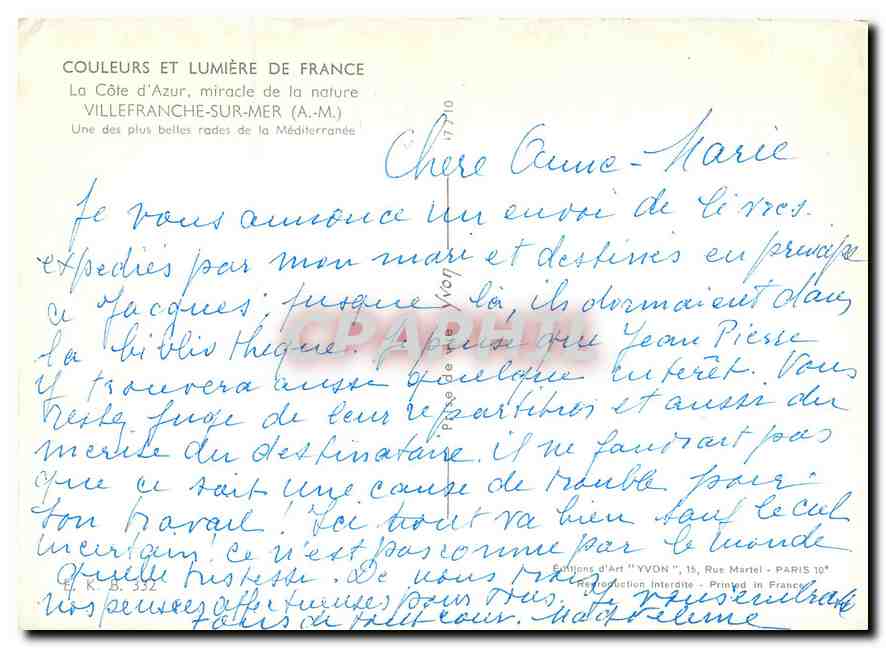 COULEURS ET LUMIÈRE DE FRANCE
La Côte d'Azur, miracle de la nature
VILLEFRANCHE-SUR-MER (A.-M.)
Une des plus belles rades de la Méditerranée
17 7 10
Chere Anne-Marie
Je vous annonce un envoi de livres.
expediés par mon mari et destinés en principe
a Jacques; jusque là, ils dormaient dans
la bibliotheque. Je pense que Jean Pierre
y trouvera aussi quelque interêt. Vous
restez juge de leur repartition et aussi du
merite du destinataire. il ne faudrait pas
que ce soit une cause de trouble pour
son travail! Ici tout va bien sauf le ciel
incertain! ce n'est pas comme par le monde
quelle tristesse. De nous trois
nos pensées affectueuses pour tous. Je vous embrasse
tous de tout cour. Madeleine
Prise de vue Yvon
CPAPHIL
E. K. B. 332
Éditions d'Art "YVON", 15, Rue Martel - PARIS 10e
Reproduction Interdite - Printed in France